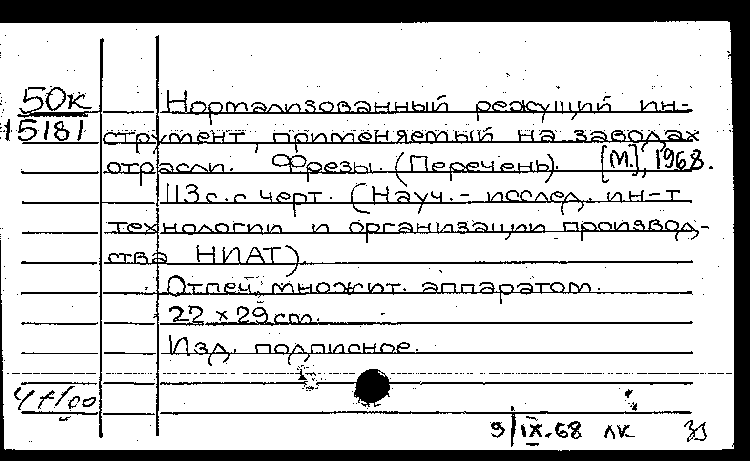 50к Нормализованный режущий ин-
15181 струмент, применяемый на заводах
отрасли. Фрезы. (Перечень). [М.], 1968.
113 с. с черт. (Науч.- исслед. ин-т
технологии и организации производ-
ства НИАТ).
Отпеч. множит. аппаратом.
22 x 29 cm.
Изд. подписное.
9/IX.68 лк